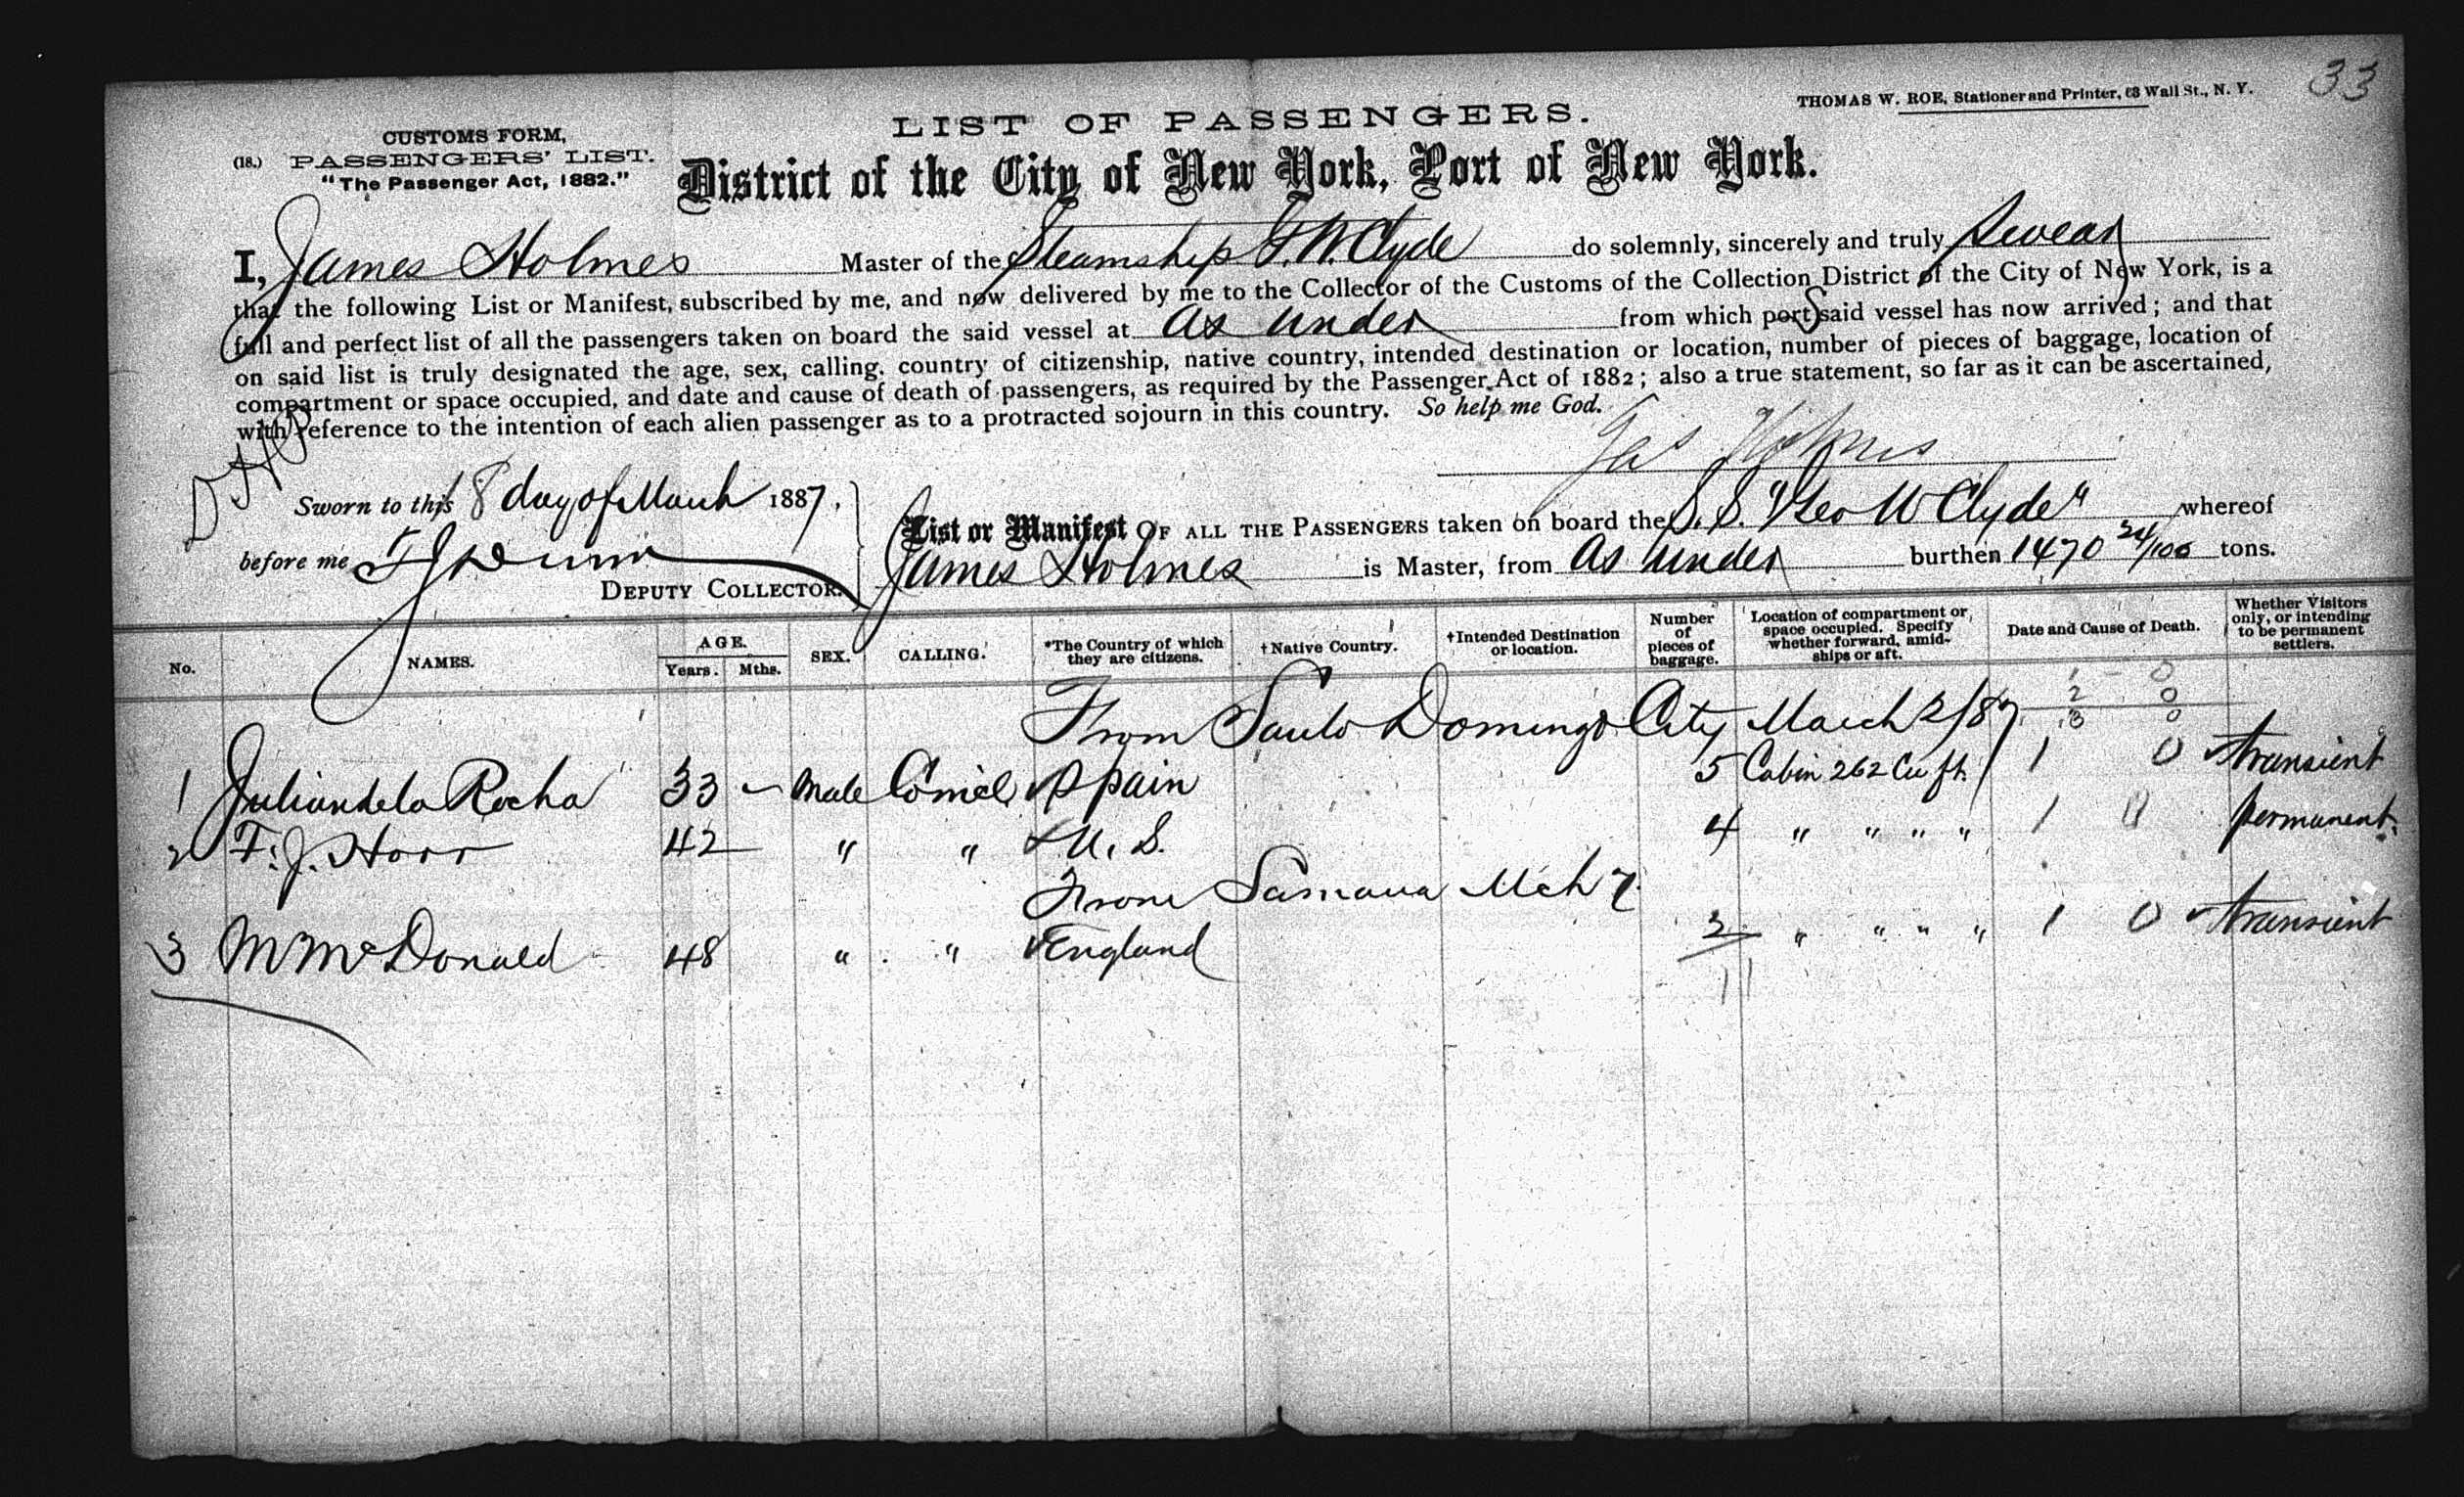 33
THOMAS W. ROE, Stationer and Printer, 63 Wall St., N. Y.
LIST OF PASSENGERS.
CUSTOMS FORM,
(18.) PASSENGERS' LIST.
"The Passenger Act, 1882."
District of the City of New York, Port of New York.
I, James Holmes Master of the Steamship G. W. Clyde do solemnly, sincerely and truly swear
that the following List or Manifest, subscribed by me, and now delivered by me to the Collector of the Customs of the Collection District of the City of New York, is a
full and perfect list of all the passengers taken on board the said vessel at as under from which ports said vessel has now arrived; and that
on said list is truly designated the age, sex, calling, country of citizenship, native country, intended destination or location, number of pieces of baggage, location of
compartment or space occupied, and date and cause of death of passengers, as required by the Passenger Act of 1882; also a true statement, so far as it can be ascertained,
with reference to the intention of each alien passenger as to a protracted sojourn in this country. So help me God.
Jas Holmes
Sworn to this 18 day of March 1887,
before me F J Dunn
DEPUTY COLLECTOR.
List or Manifest OF ALL THE PASSENGERS taken on board the S. S. "Geo W Clyde" whereof
James Holmes is Master, from as under burthen 1470 24/100 tons.
No. NAMES. AGE. Years. Mths. SEX. CALLING. *The Country of which they are citizens. †Native Country. †Intended Destination or location. Number of pieces of baggage. Location of compartment or space occupied. Specify whether forward, amidships or aft. Date and Cause of Death. Whether Visitors only, or intending to be permanent settlers.
1 - 0
2 0
3 0
From Santo Domingo City March 2/87
1 Julian de la Rocha 33 - Male Comcl Spain 5 Cabin 262 Cu ft. 1 0 transient
2 F. J. Horr 42 " " U. S. 4 " " " " 1 permanent
From Samana Mch 7
3 M McDonald 48 " " England 2 " " " " 1 0 transient
11